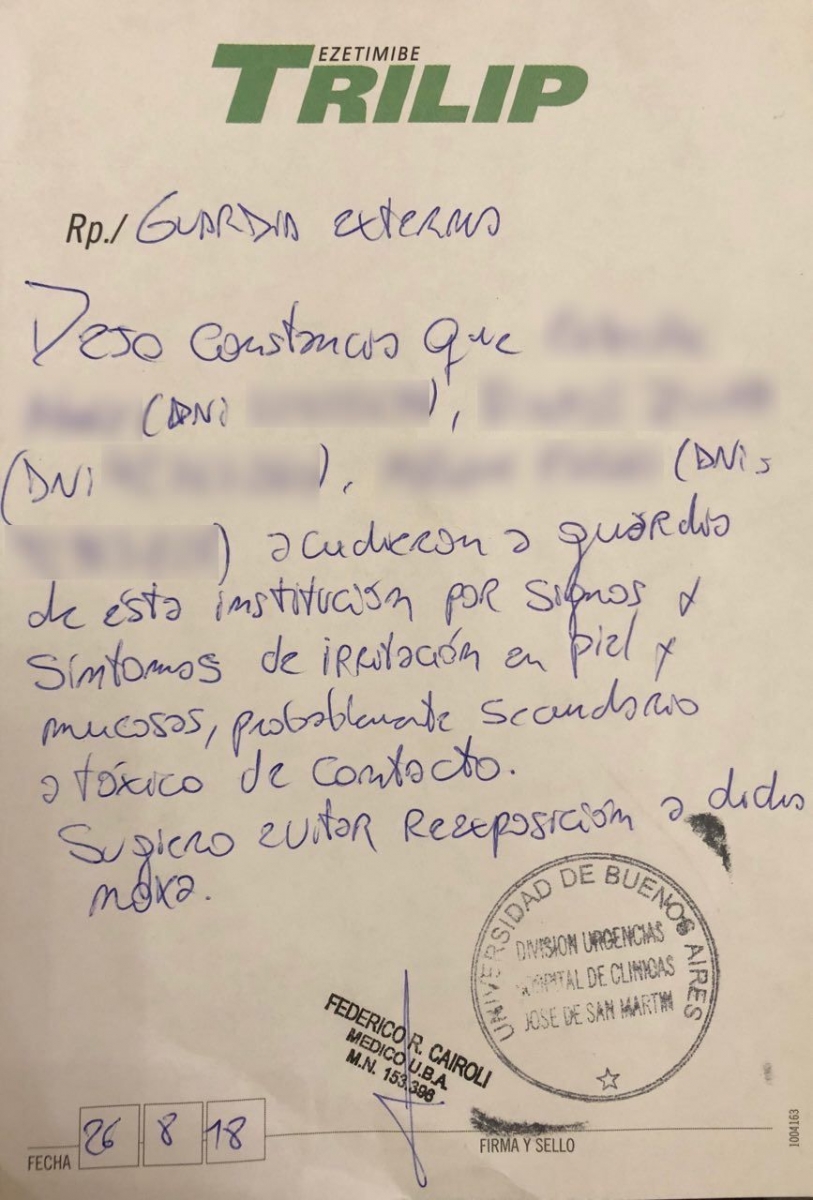 EZETIMIBE
TRILIP
Rp./ Guardia externa
Dejo constancia que
(DNI ),
(DNI ), (DNI
) acudieron a guardia
de ésta institución por signos y
síntomas de irritación en piel y
mucosas, probablemente secundario
a tóxico de contacto.
Sugiero evitar reexposición a dicha
noxa.
UNIVERSIDAD DE BUENOS AIRES
DIVISION URGENCIAS
HOSPITAL DE CLINICAS
JOSE DE SAN MARTIN
FEDERICO R. CAIROLI
MEDICO U.B.A.
M.N. 153.396
FECHA 26 8 18
FIRMA Y SELLO
1004163